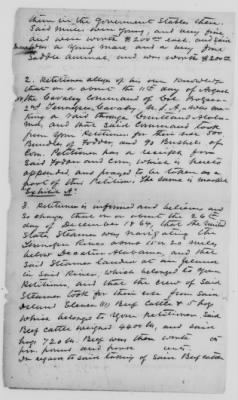 them in the Government Stables there.
Said mules were young, and very fine
and were worth $200.00 each, and said
was a young mare and very fine
Saddle animal, and was worth $200.00
2. Petitioner alleges of his own knowledge
that on or about the 11th day of August
the Cavalry Command of Col.
2nd Tennessee Cavalry U.S.A. was making
a raid through
and said Command took
from your Petitioner for their use
Bundles of Fodder, and 70 Bushels of
Corn. Petitioner has a receipt from
said Fodder and Corn, which is hereto
appended, and prayed to be taken as a
part of this Petition. The same is marked
3. Petitioner is informed and believes and
so charges that on or about the 26th
day of December 1864, the United
State Steamer was navigating the
Tennessee River some 15 or 20 miles
below Decatur Alabama, and that
said Steamer landed at an Island
in said River, which belonged to your
Petitioner, and that the crew of said
Steamer took for their use from said
Island Eleven (11) Beef Cattle & hogs
which belonged to your petitioner. Said
Beef cattle weighed 4400 lbs, and said
hogs 720 lbs. Beef was then worth cts
per pound and pork cts.
In regard to said taking of said Beef cattle